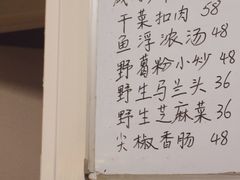 干菜扣肉 58
鱼浮浓汤 48
野葛粉小炒 48
野生马兰头 36
野生芝麻菜 36
尖椒香肠 48